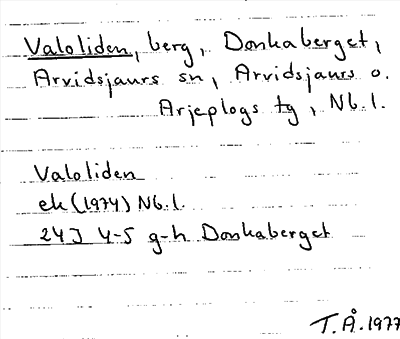 Valoliden, berg, Donkaberget,
Arvidsjaurs sn, Arvidsjaurs o.
Arjeplogs tg, Nb. l.
Valoliden
ek (1974) Nb. l.
24J 4-5 g-h Donkaberget
T.Å. 1977